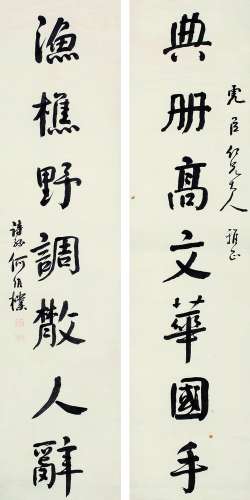 虎臣仁兄大人雅正
典册高文華國手
漁樵野調散人辭
詩孫何維樸